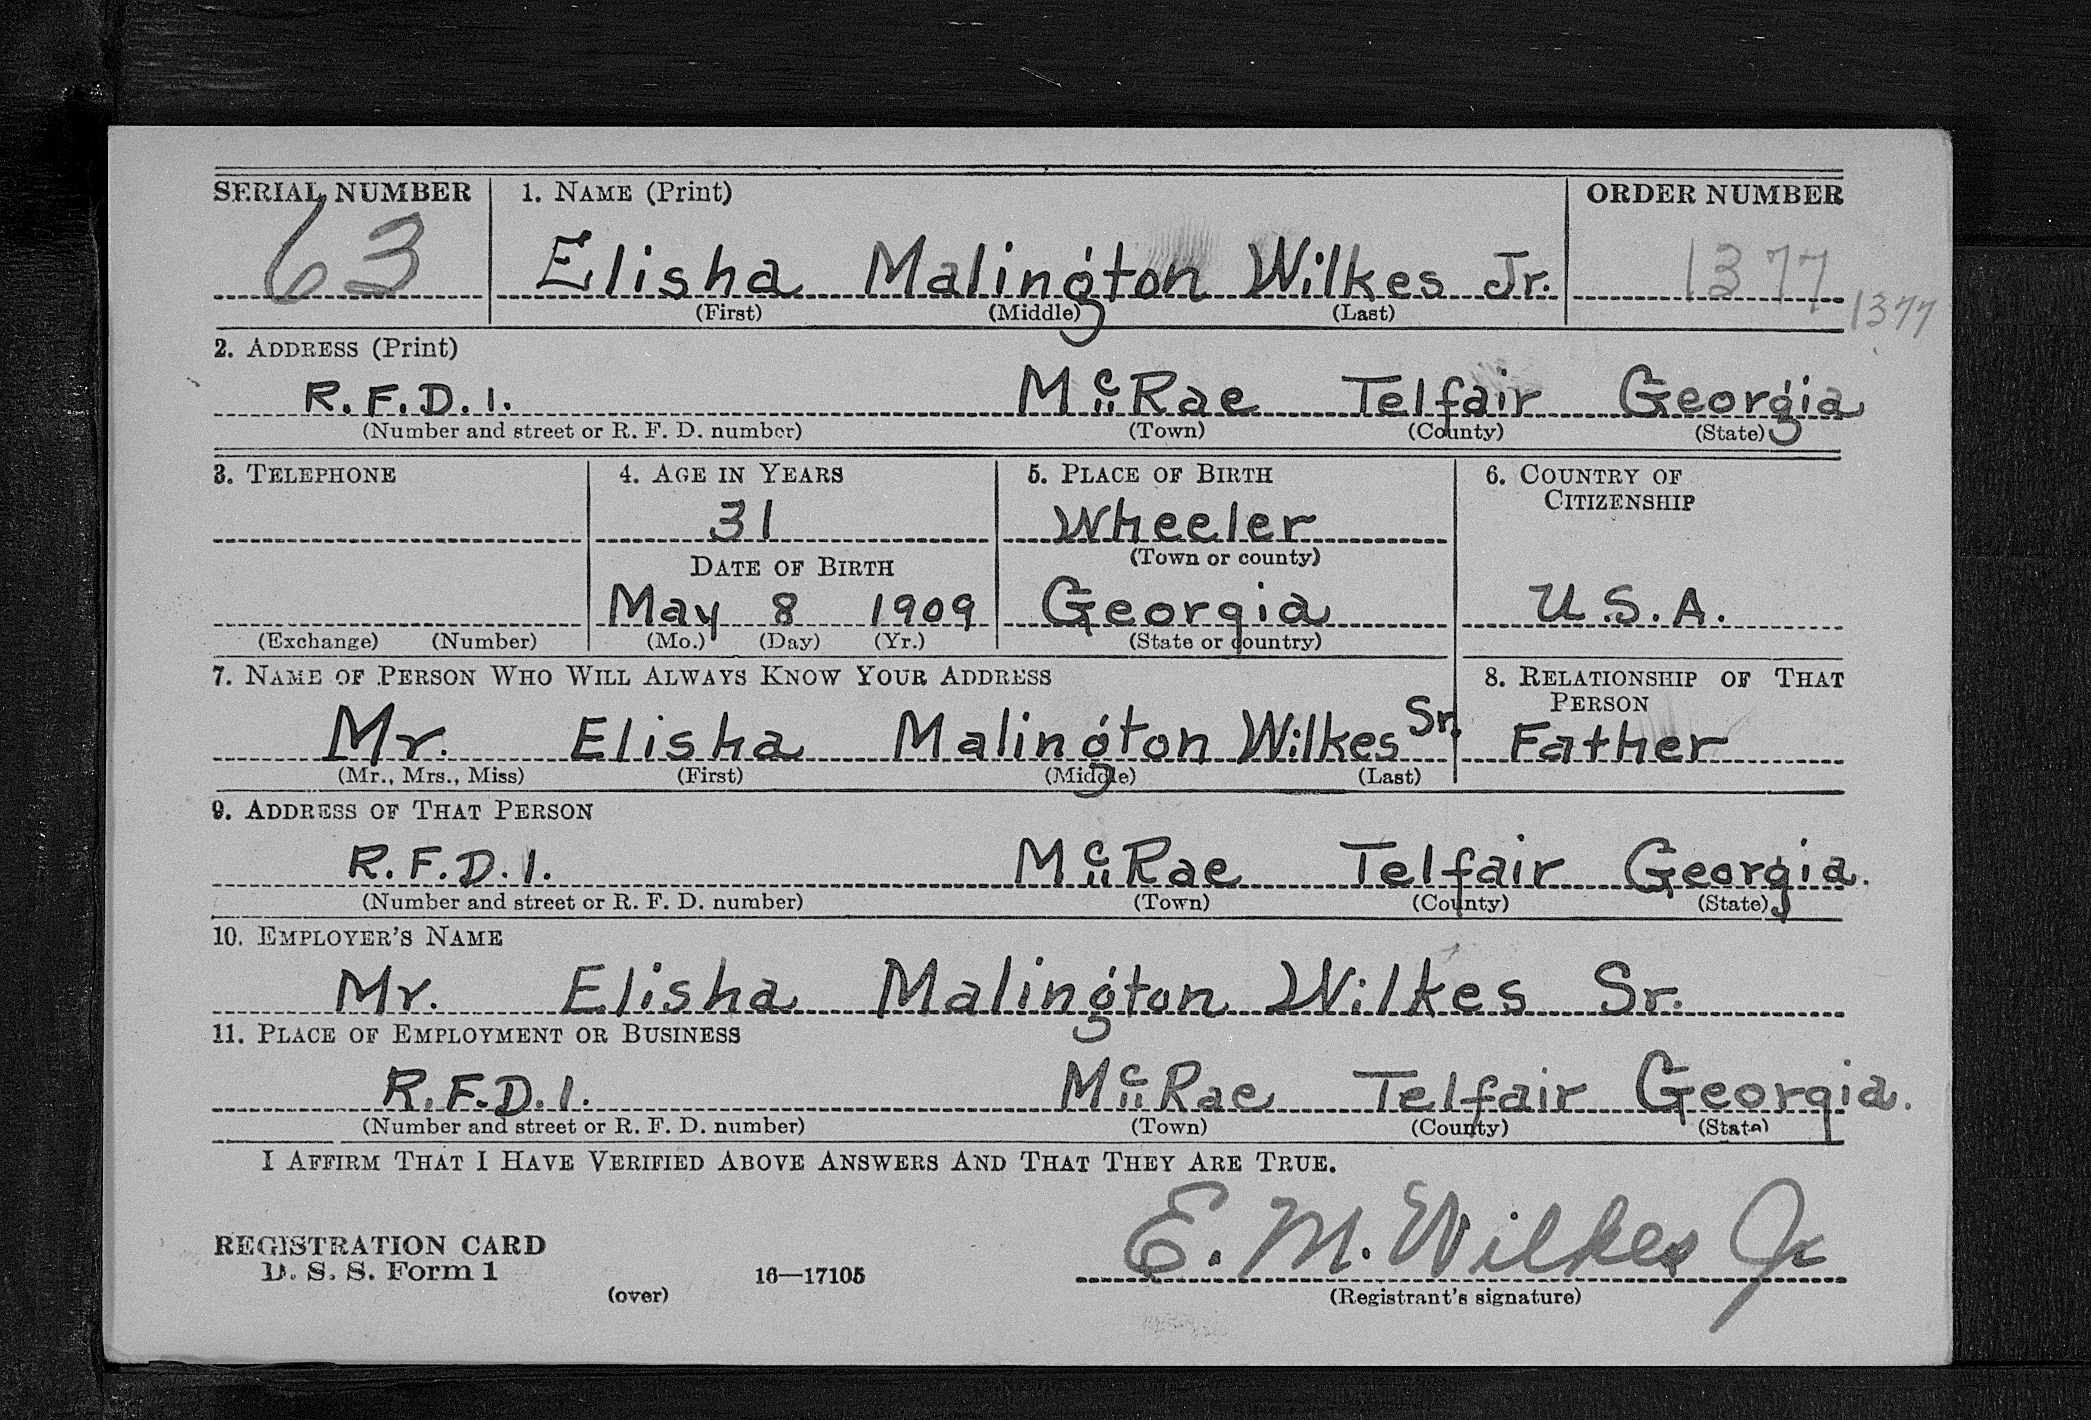 SERIAL NUMBER 1. NAME (Print) ORDER NUMBER
63 Elisha Malington Wilkes Jr. 1377
(First) (Middle) (Last) 1377
2. ADDRESS (Print)
R.F.D.1. McRae Telfair Georgia
(Number and street or R. F. D. number) (Town) (County) (State)
3. TELEPHONE 4. AGE IN YEARS 5. PLACE OF BIRTH 6. COUNTRY OF
CITIZENSHIP
31 Wheeler
(Town or county)
DATE OF BIRTH
May 8 1909 Georgia U.S.A.
(Exchange) (Number) (Mo.) (Day) (Yr.) (State or country)
7. NAME OF PERSON WHO WILL ALWAYS KNOW YOUR ADDRESS 8. RELATIONSHIP OF THAT
PERSON
Mr. Elisha Malington Wilkes Sr. Father
(Mr., Mrs., Miss) (First) (Middle) (Last)
9. ADDRESS OF THAT PERSON
R.F.D.1. McRae Telfair Georgia.
(Number and street or R. F. D. number) (Town) (County) (State)
10. EMPLOYER'S NAME
Mr. Elisha Malington Wilkes Sr.
11. PLACE OF EMPLOYMENT OR BUSINESS
R.F.D.1. McRae Telfair Georgia.
(Number and street or R. F. D. number) (Town) (County) (State)
I AFFIRM THAT I HAVE VERIFIED ABOVE ANSWERS AND THAT THEY ARE TRUE.
E. M. Wilkes Jr
REGISTRATION CARD
D. S. S. Form 1 16—17105
(over) (Registrant's signature)